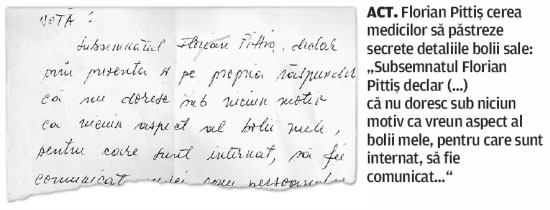 NOTĂ:
Subsemnatul Florian Pittiș, declar
prin prezenta și pe propria răspundere
că nu doresc sub niciun motiv
ca niciun aspect al bolii mele,
pentru care sunt internat, să fie
comunicat
ACT. Florian Pittiș cerea
medicilor să păstreze
secrete detaliile bolii sale:
„Subsemnatul Florian
Pittiș declar (...)
că nu doresc sub niciun
motiv ca vreun aspect al
bolii mele, pentru care sunt
internat, să fie
comunicat...“